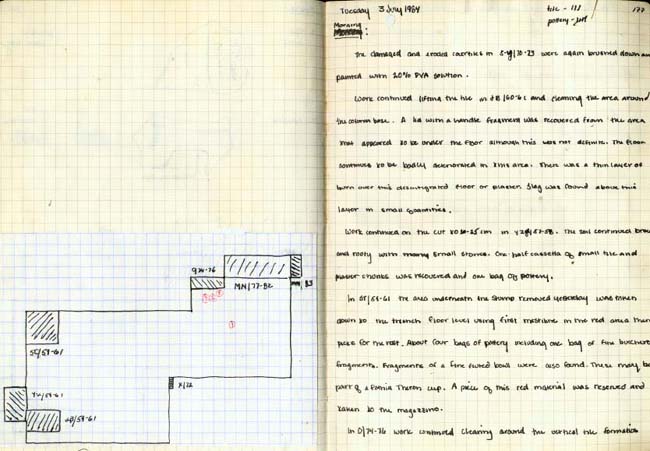 970-76
MN/77-82
5C/58-61
X/72
Tuesday 3 July 1984
tile - 111
pottery -
177
Morning
The damaged and eroded courtiles in were again brushed down and
painted with 20% PVA solution.
Work continued lifting the tile in dB/60-61 and cleaning the area around
the column base. A lid with a handle fragment was recovered from the area
that appeared to be under the floor although this was not definite. The floor
continues to be badly deteriorated in this area. There was a thin layer of
burn over this disintegrated floor or plaster. Slag was found above this
layer in small quantities.
Work continued on the cut to 20-25 cm in /57-58. The soil continued brown
and rooty with many small stones. One half cassetta of small tile and
plaster chunks was recovered and one bag of pottery.
In /61-61 the area underneath the stump removed yesterday was taken
down to the trench floor level using first mastrine in the red area then
picks for the rest. About four bags of pottery including one bag of fine bucchero
fragments. Fragments of a fine fluted bowl were also found. These may be
part of a Fonia Theron cup. A piece of this red material was reserved and
taken to the magazzino.
In D/74-76 work continued clearing around the vertical tile formation